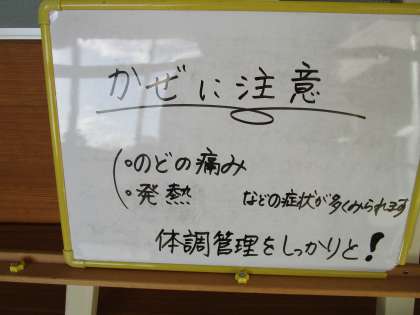 かぜに注意
・のどの痛み
・発熱
などの症状が多くみられます
体調管理をしっかりと!